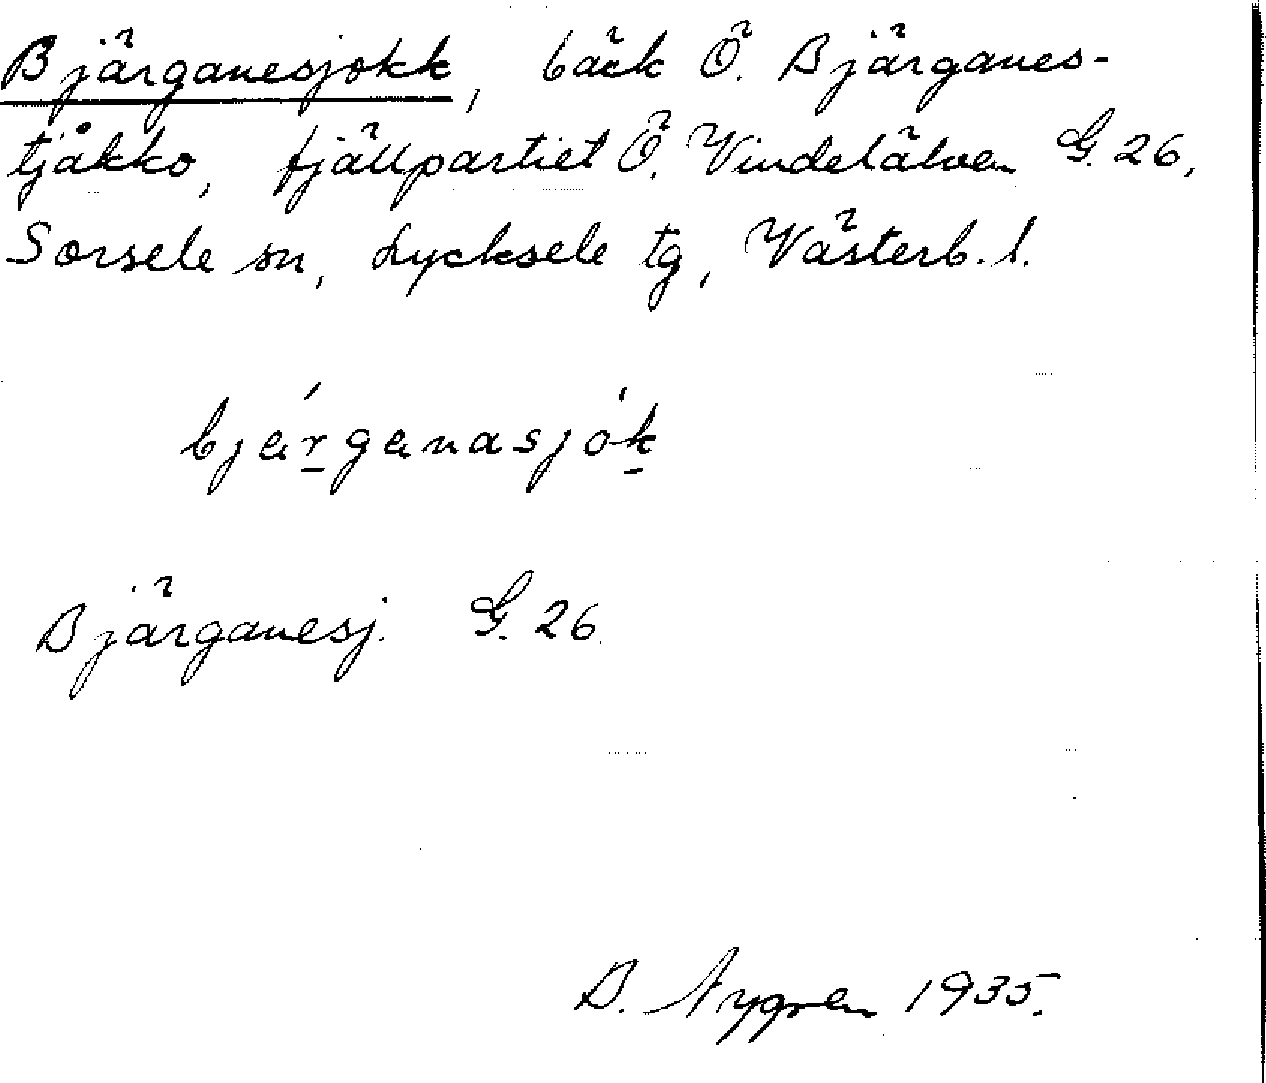 Bjärganesjokk, bäck Ö. Bjärganes-
tjåkko, fjällpartiet Ö. Vindelälven G. 26,
Sorsele sn, Lycksele tg, Västerb. l.
bjárganasjók
Bjärganesj. G. 26.
B. Nygren 1935.